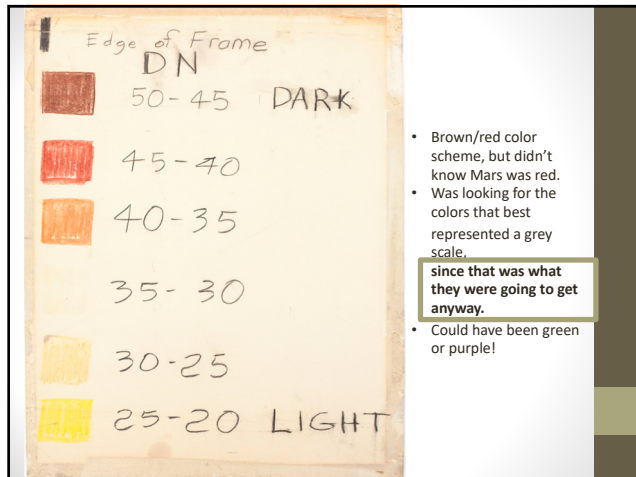 Edge of Frame
DN
50-45 DARK
45-40
40-35
35-30
30-25
25-20 LIGHT
• Brown/red color
scheme, but didn't
know Mars was red.
• Was looking for the
colors that best
represented a grey
scale,
since that was what
they were going to get
anyway.
• Could have been green
or purple!